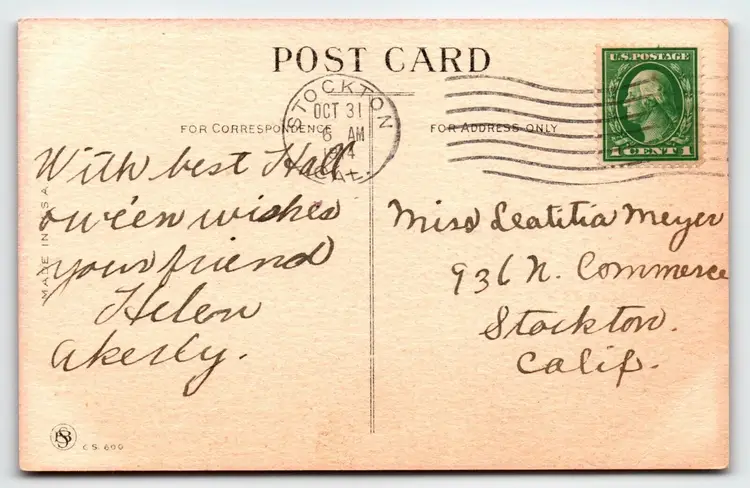 POST CARD
U.S. POSTAGE
1 CENT 1
STOCKTON
OCT 31
6 AM
1914
CAL.
FOR CORRESPONDENCE
FOR ADDRESS ONLY
With best Hall
owe'en wishes
your friend
Helen
Akerly.
Miss Leatitia Meyer
936 N. Commerce
Stockton.
Calif.
MADE IN U.S.A.
C.S. 600